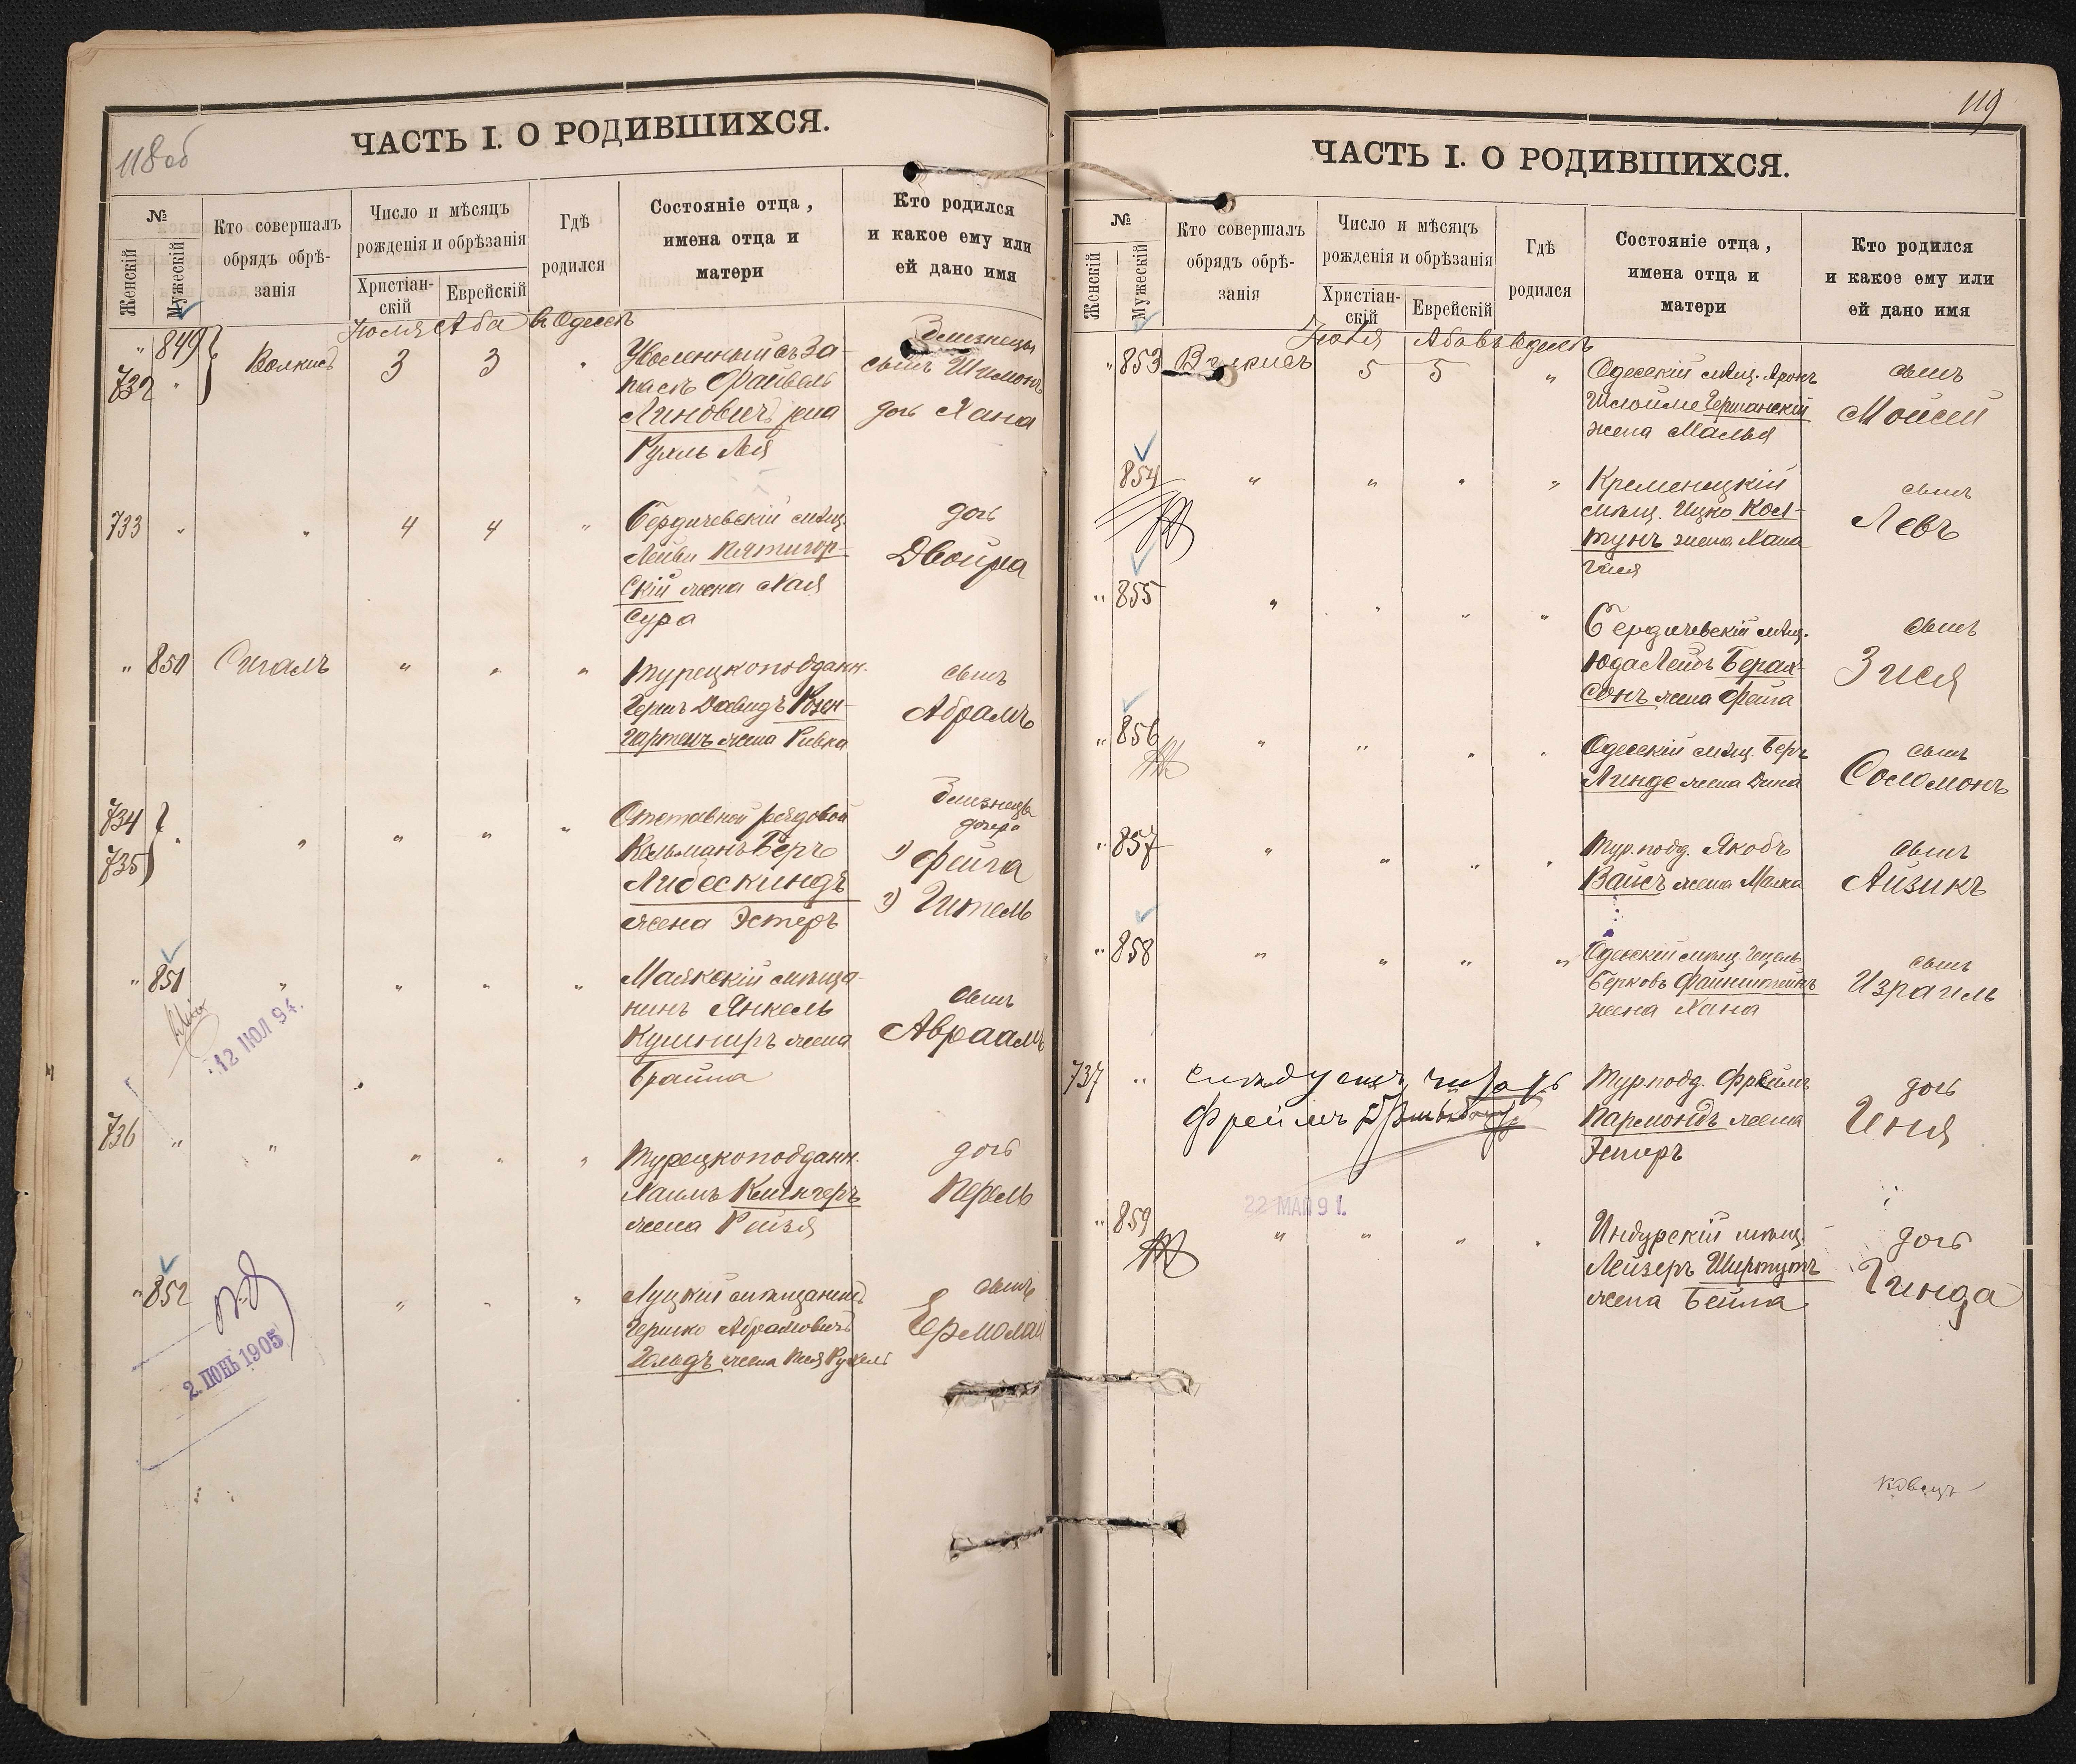 118 об
ЧАСТЬ I. О РОДИВШИХСЯ.
№
Женскій
Мужескій
Кто совершалъ
обрядъ обрѣ-
занія
Число и мѣсяцъ
рожденія и обрѣзанія
Христіан-
скій
Еврейскій
Гдѣ
родился
Состояніе отца,
имена отца и
матери
Кто родился
и какое ему или
ей дано имя
Іюля Аба въ Одессѣ
" 849
732 "
3 3 "
Уволенный въ За-
пасъ Файвель
Линовичъ жена
Рухль Лея
близнецы
сынъ Шимонъ
дочь Хана
733 " " 4 4 "
Бердичевскій мѣщ.
Лейви Пятигор-
скій жена Хая
Сура
дочь
Двойра
" 850 Сигалъ " " "
Турецкоподданн.
Герш Давидъ Розен-
гартенъ жена Ривка
сынъ
Абрамъ
734
735 " " " " "
Отставной рядовой
Кальманъ Беръ
Либескиндъ
жена Эстеръ
близнецы
дочери
1) Фейга
2) Гитель
" 851 " " " "
12 ІЮЛ 94.
Маякскій мѣща-
нинъ Янкель
Кушниръ жена
Брайна
сынъ
Авраамъ
736 " " " " "
Турецкоподданн.
Хаимъ
жена Рейзя
дочь
Перель
" 852 " " "
2. ІЮНЬ 1905
Луцкій мѣщанинъ
Гершко Абрамовичъ
Гольдъ жена Песя Рухель
сынъ
Ермолай
119
ЧАСТЬ I. О РОДИВШИХСЯ.
№
Женскій
Мужескій
Кто совершалъ
обрядъ обрѣ-
занія
Число и мѣсяцъ
рожденія и обрѣзанія
Христіан-
скій
Еврейскій
Гдѣ
родился
Состояніе отца,
имена отца и
матери
Кто родился
и какое ему или
ей дано имя
Іюля Аба въ Одессѣ
" 853 5 5 "
Одесскій мѣщ. Аронъ
Шлойме Германскій
жена Малья
сынъ
Моисей
854 " " " "
Кременецкій
мѣщ. Ицко Кол-
тунъ жена Хана
сынъ
Левъ
" 855 " " " "
Бердичевскій мѣщ.
Юда Лейбъ Берах-
сонъ жена Фейга
сынъ
Зися
" 856 " " " "
Одесскій мѣщ. Беръ
Линде жена Дина
сынъ
Соломонъ
" 857 " " " "
Тур. подд. Якобъ
Вайсъ жена Малка
сынъ
Айзикъ
" 858 " " " "
Одесскій мѣщ. Гецель
Берковъ Файнштейнъ
жена Хана
сынъ
Израиль
737 " слѣдуетъ читать
Фреимъ
Тур. подд. Фреимъ
жена
Эстеръ
дочь
Иня
22 МАЙ 91.
" 859 " " " "
Индурскій мѣщ.
Лейзеръ
жена Бейла
дочь
Гинда